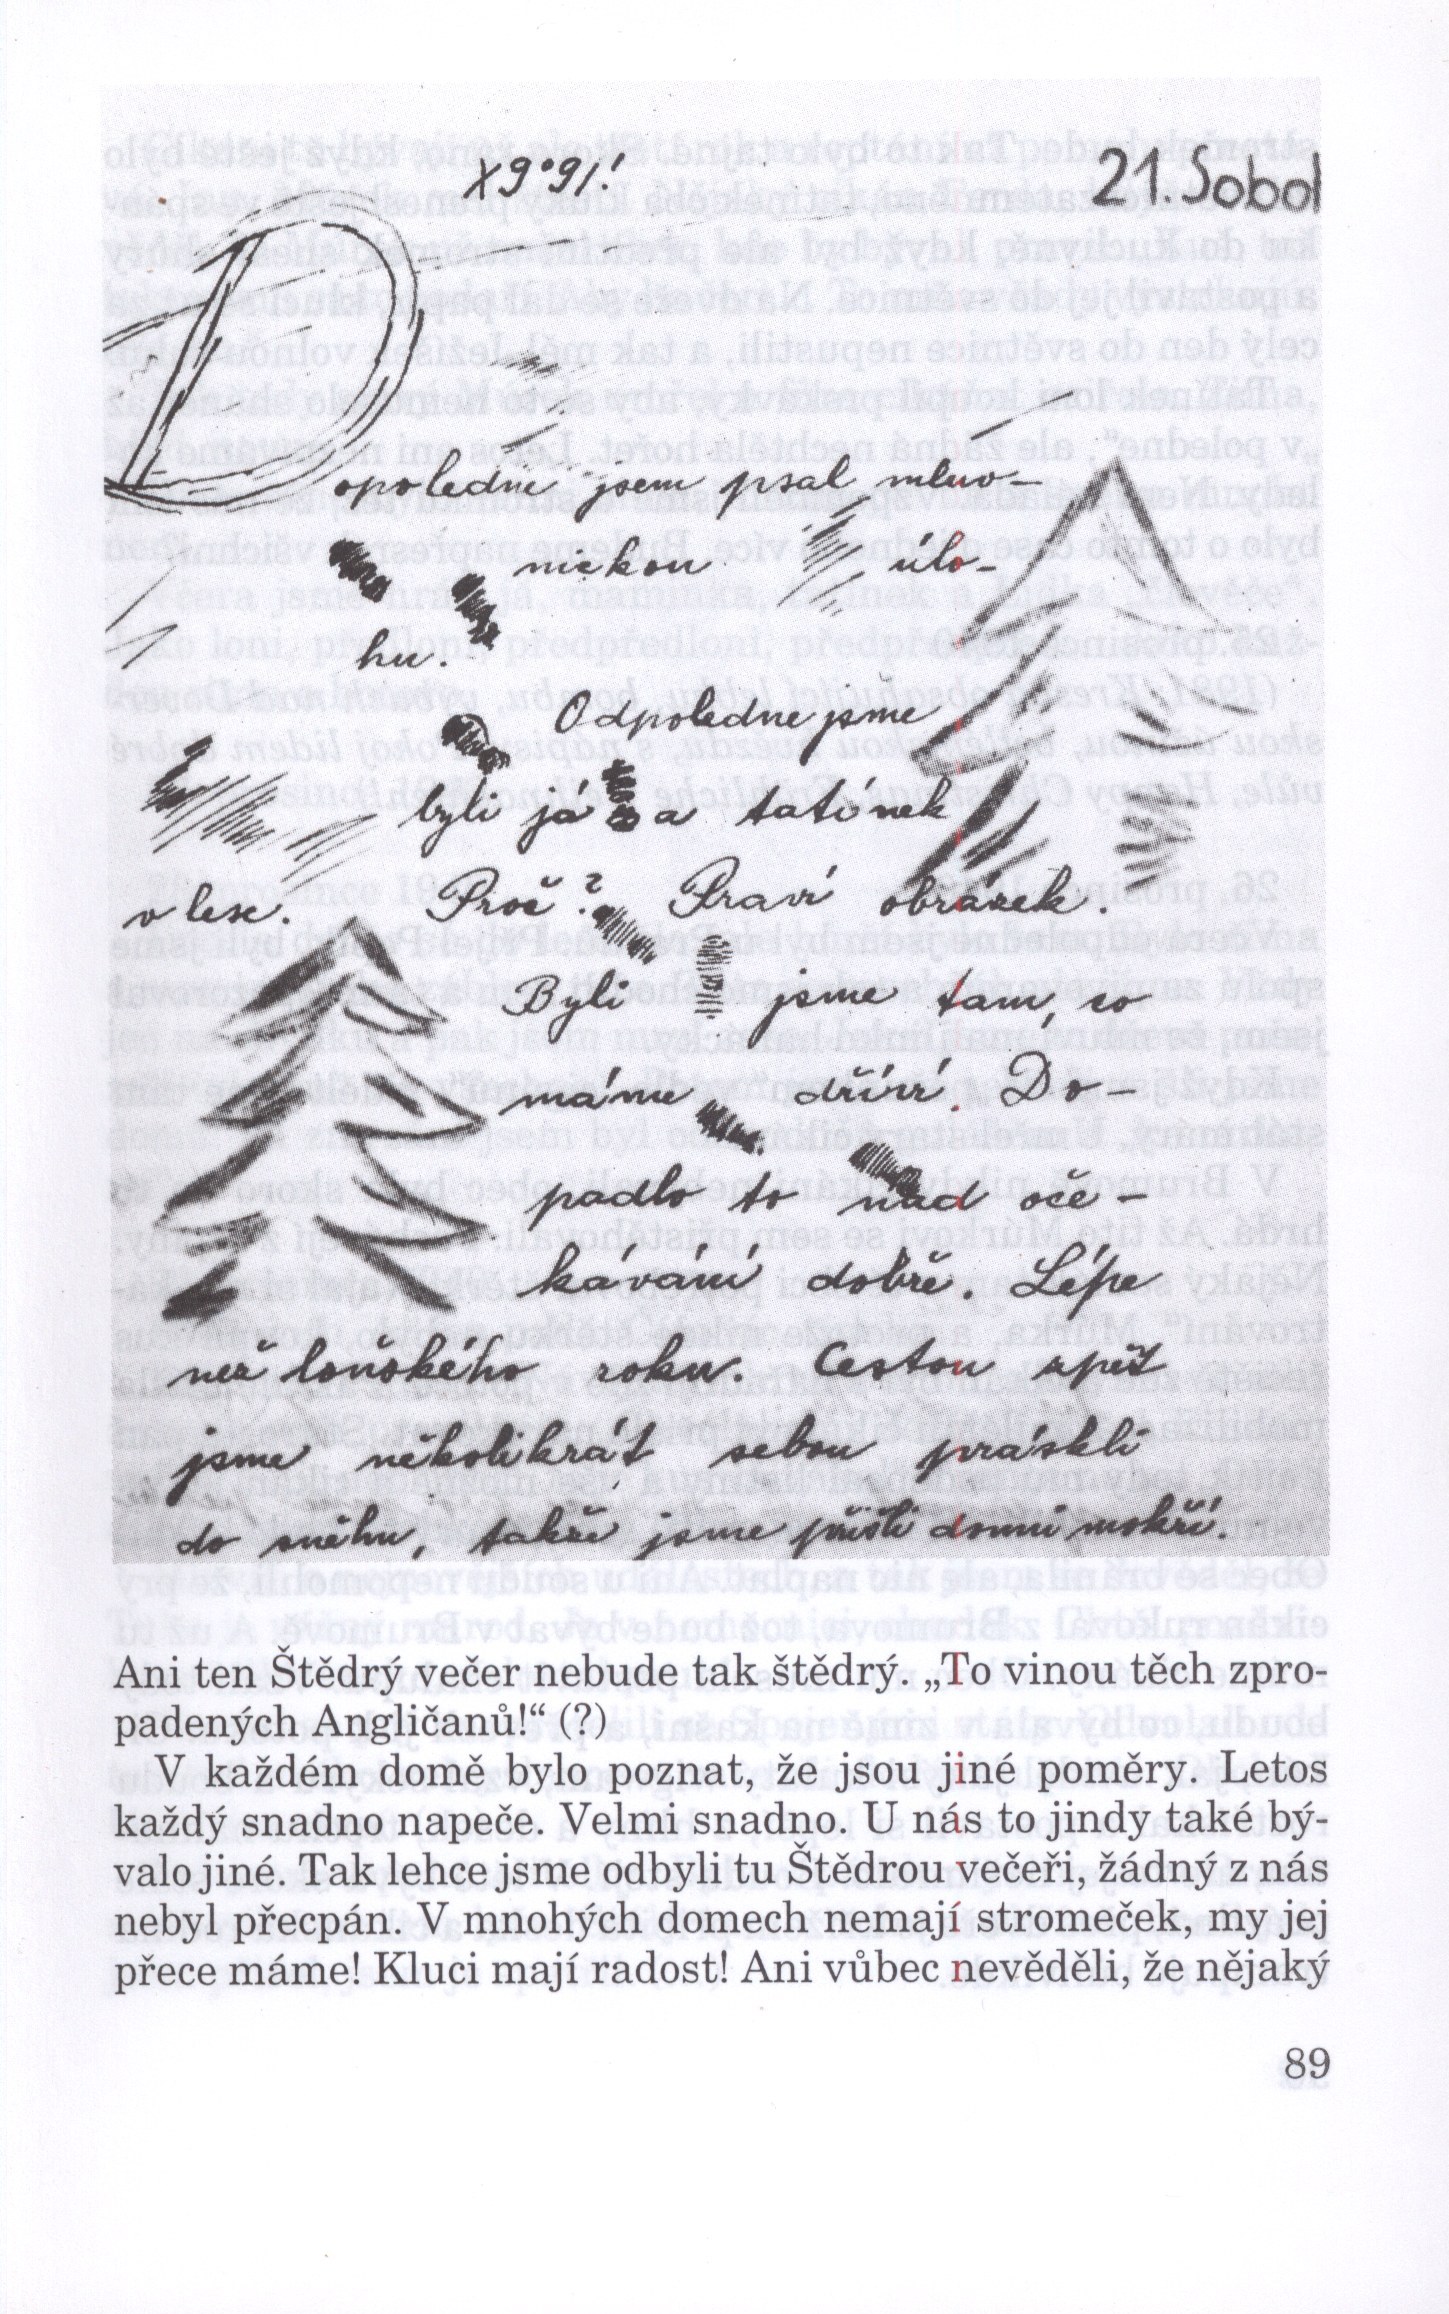 21. Sobol
Dopoledne jsem psal mluv-
nickou úlo-
hu.
Odpoledne jsme
byli já a tatínek
v lese. Proč? Praví obrázek.
Byli jsme tam, co
máme dříví. Do-
padlo to nad oče-
kávání dobře. Lépe
než loňského roku. Cestou zpět
jsme několikrát sebou práskli
do sněhu, takže jsme přišli domů mokří.
Ani ten Štědrý večer nebude tak štědrý. „To vinou těch zpro-
padených Angličanů!“ (?)
V každém domě bylo poznat, že jsou jiné poměry. Letos
každý snadno napeče. Velmi snadno. U nás to jindy také bý-
valo jiné. Tak lehce jsme odbyli tu Štědrou večeři, žádný z nás
nebyl přecpán. V mnohých domech nemají stromeček, my jej
přece máme! Kluci mají radost! Ani vůbec nevěděli, že nějaký
89